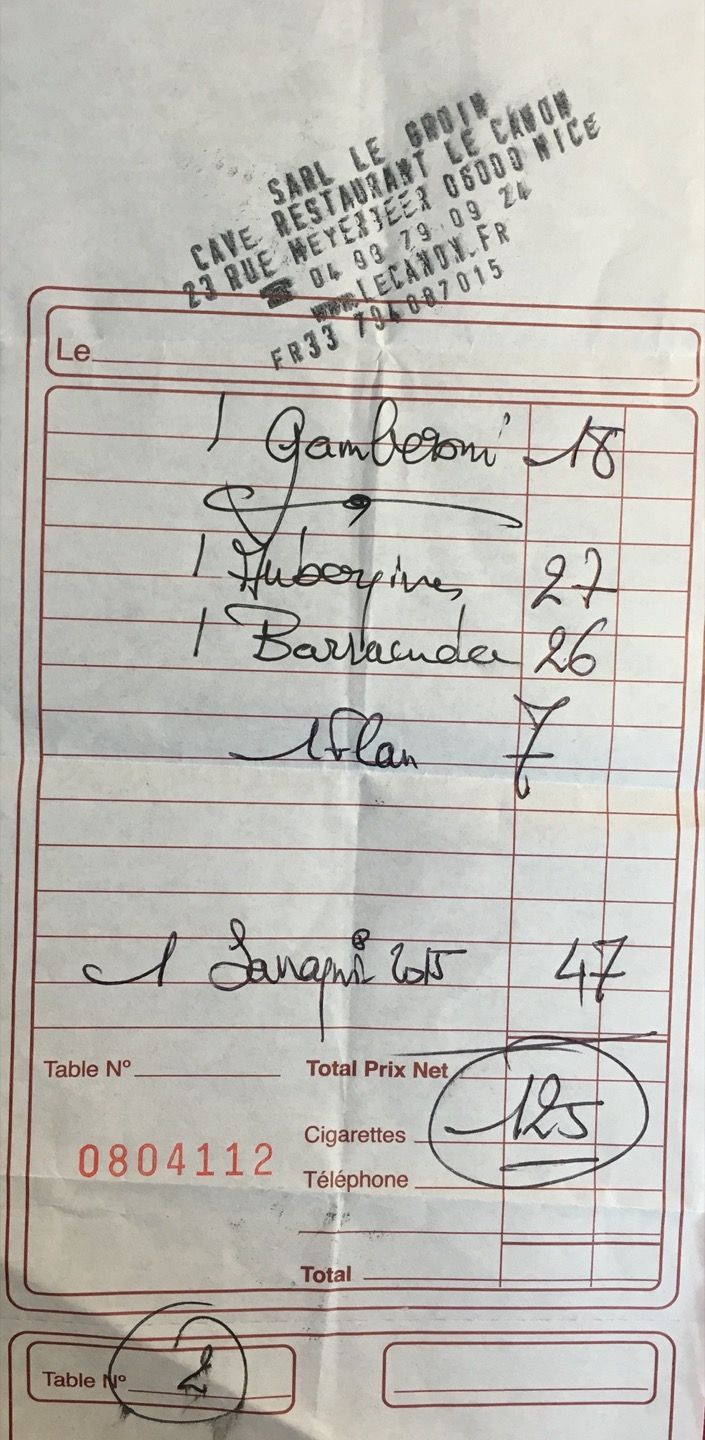 SARL LE GROIN
CAVE RESTAURANT LE CANON
23 RUE MEYERBEER 06000 NICE
☎ 04 93 79 09 24
www.LECANON.FR
FR33 794087015
Le
1 Gamberoni 18
1 Aubergines 27
1 Barracuda 26
1 Flan 7
1 2015 47
Table Nº Total Prix Net
125
Cigarettes
0804112
Téléphone
Total
Table Nº 2